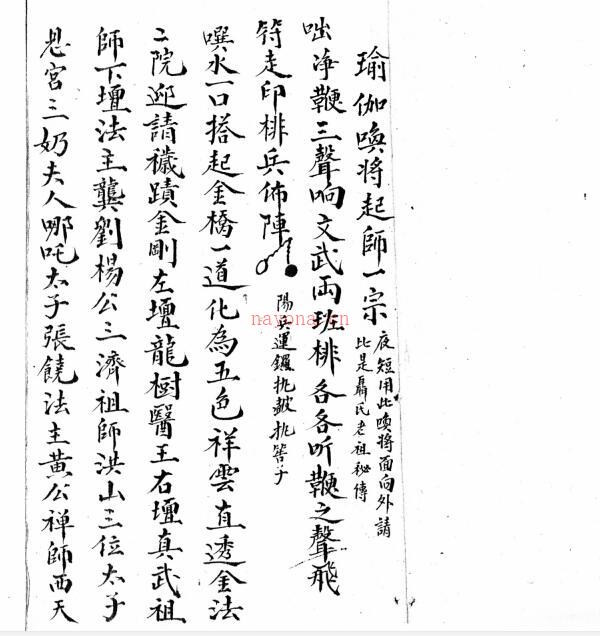 瑜伽喚将起師一宗
夜短用此喚将面向外請
此是聶氏老祖秘傳
咄淨鞭三聲响文武両班排各各听鞭之聲飛
符走印排兵佈陣
陽兵運鑼扒鼓扒筶子
噀水一口搭起金橋一道化為五色祥雲直透金法
二院迎請穢蹟金剛左壇龍樹醫王右壇真武祖
師下壇法主龔劉楊公三濟祖師洪山三位太子
昆宮三奶夫人哪吒太子張饒法主黄公禅師西天
nayona.cn